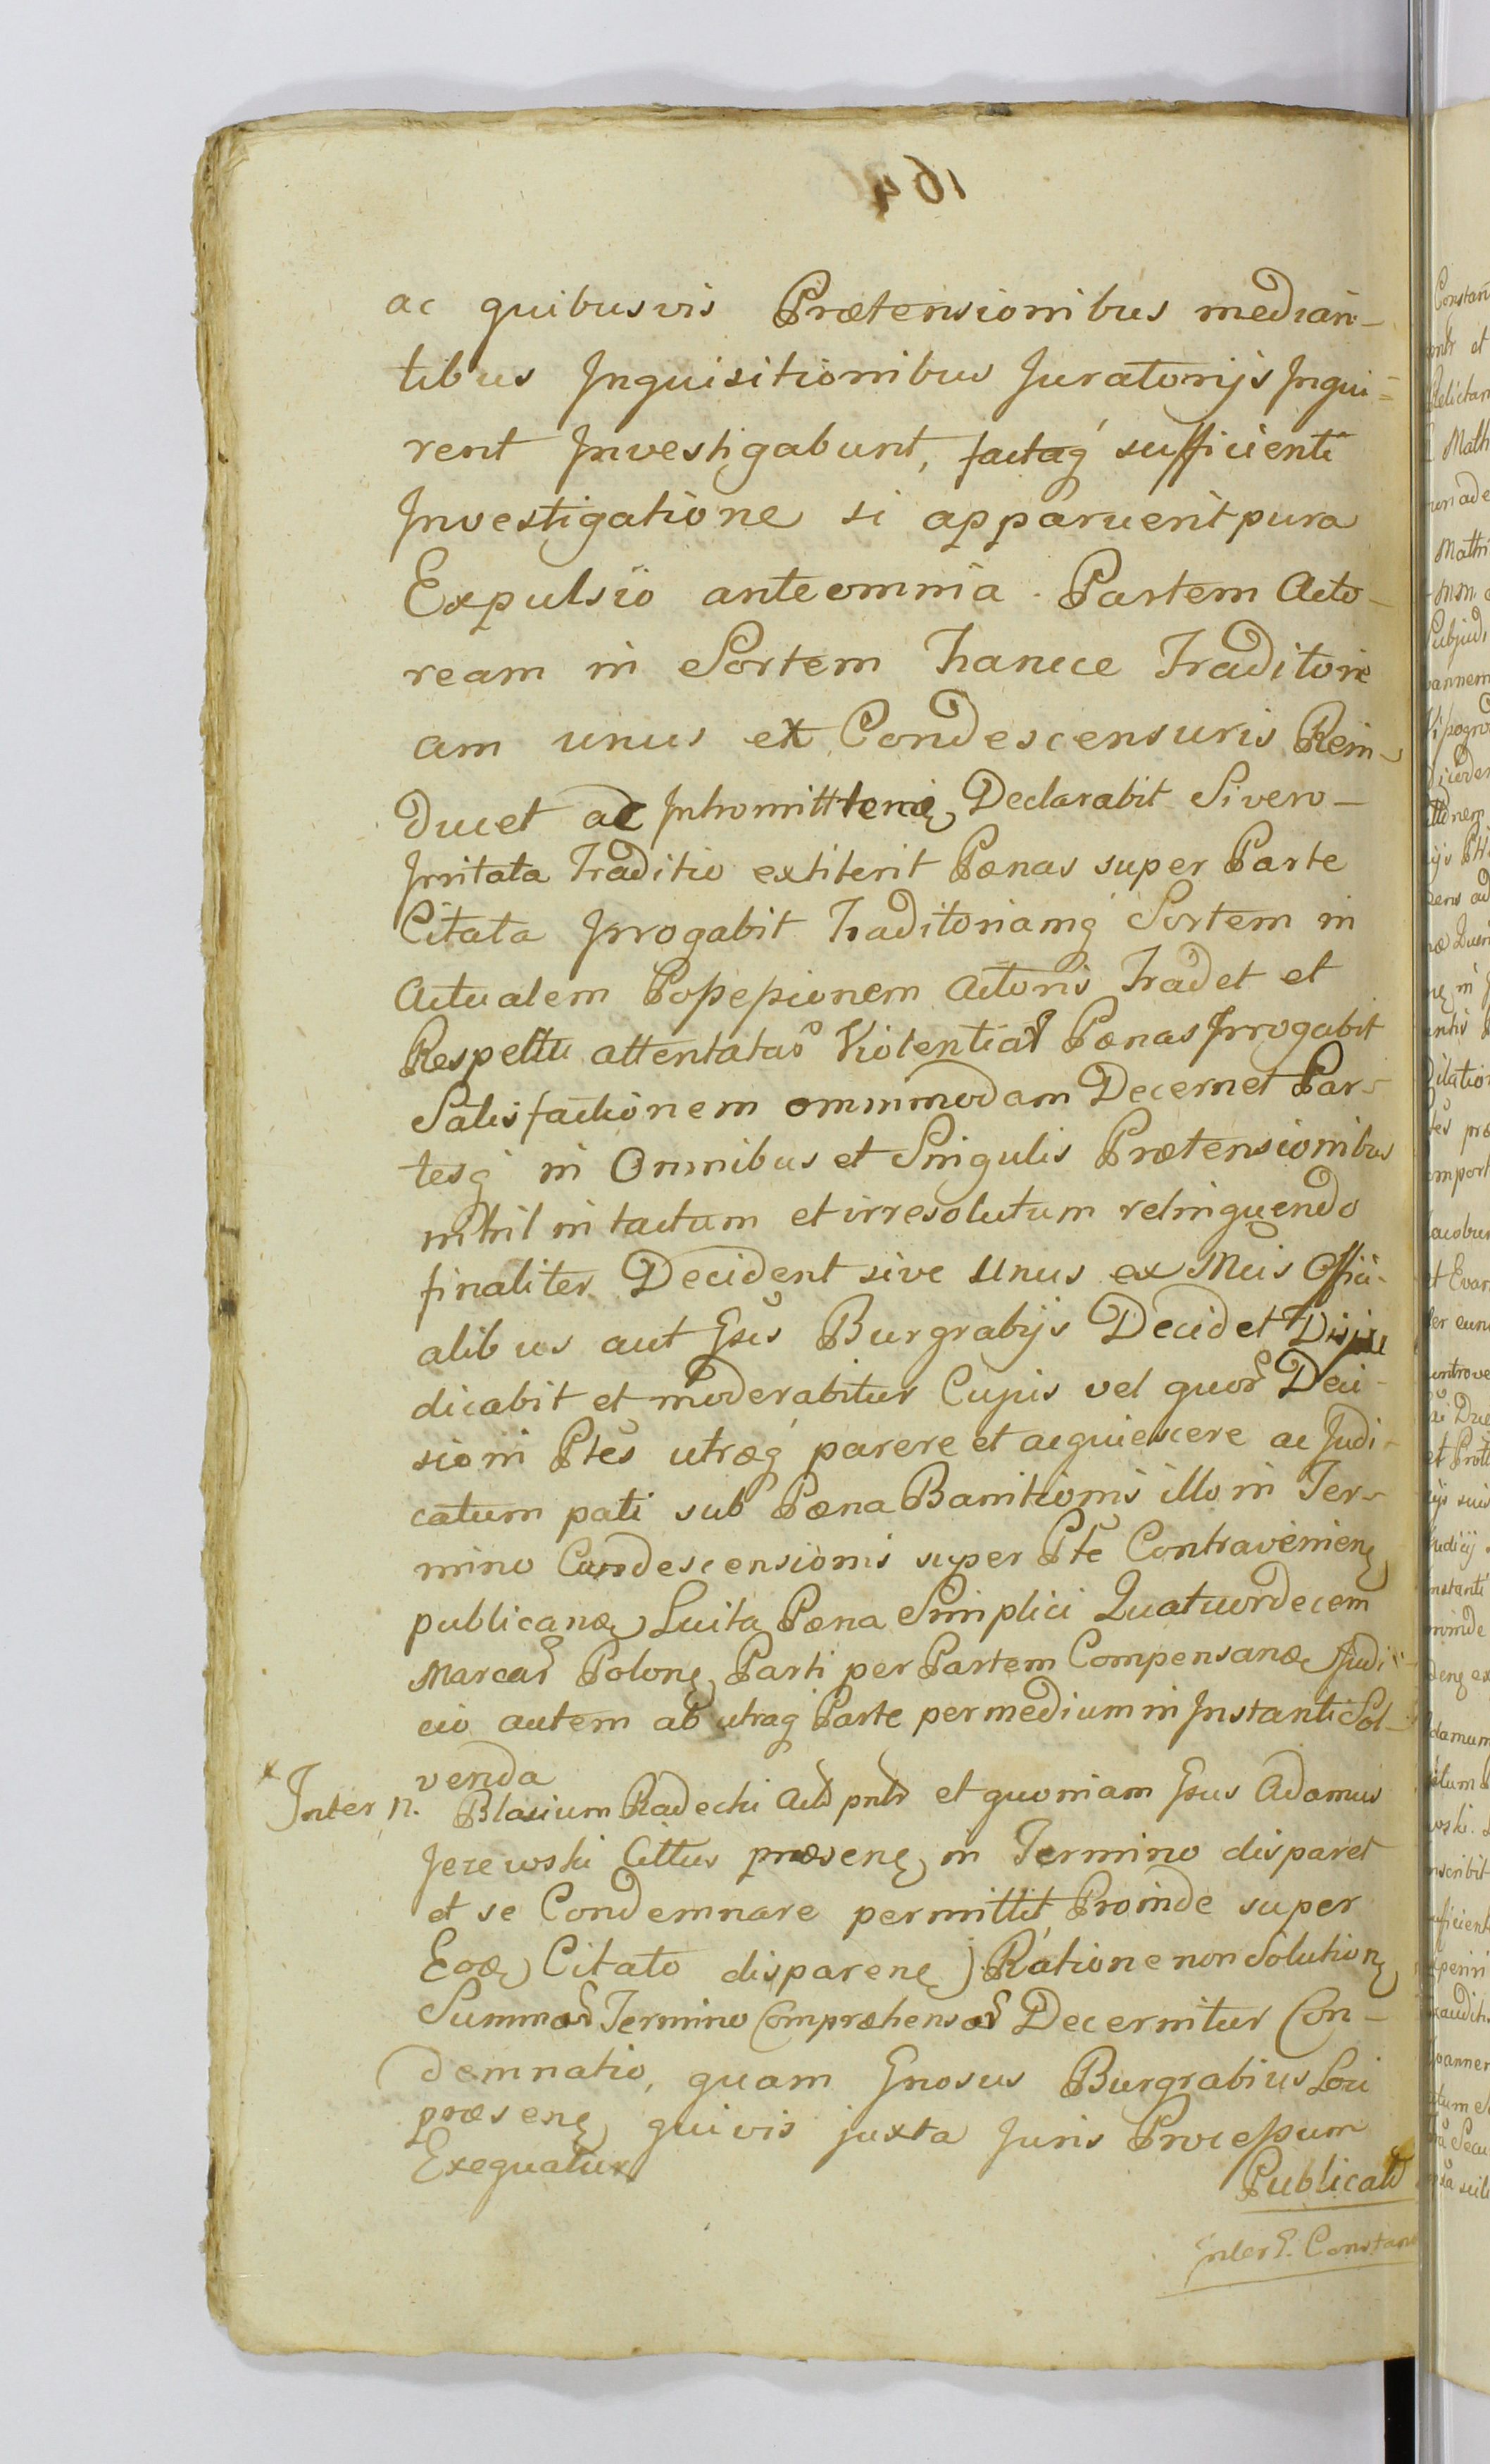 164
ac quibusvis Prætensionibus median-
tibus Inquisitionibus Juratorijs Inqui=
rent Investigabunt, factaq́ sufficienti
Investigatione si apparuerit pura
Expulsio ante omnia Partem Acto-
ream in Sortem hancce Traditori
am unus ex Condescensuris Rein-
ducet ac Intromittenę Declarabit Si vero-
Irritata Traditio extiterit Pœnas super Parte
Citata Irrogabit Traditoriamq́ Sortem in
Actualem Possessionem Actoris Tradet et
Respectu attentatæ Violentiæ Pœnas Irrogabit
Satisfactionem omnimodam Decernet Par-
tesq́ in Omnibus et Singulis Prætensionibus
nihil intactum et irresolutum relinquendo
finaliter Decident sive Unus ex Meis Offici-
alibus aut Gsis Burgrabijs Decidet Diju
dicabit et moderabitur Cujus vel quor Deci-
sioni Ptes utræq́ parere et acquiescere ac Judi-
catum pati sub Pœna Banitionis illo in Ter-
mino Condescensionis super Pte Contravenienę
publicanæ Luita Pœna Simplici Quatuordecem
Marcar Polonę Parti per Partem Compensanæ Judi-
cio autem ab utraq́ Parte per medium in Instanti Sol-
venda
Inter n. Blasium Radecki Act pntr et quoniam Gsus Adamus
Jezewski Cittus præsenę in Termino disparet
et se Condemnare permittit, Proinde super
Eoæ Citato disparenę Ratione non Solutionę
Summæ Termino Compræhensæ Decernitur Con-
demnatio, quam Gnosus Burgrabius Loci
præsenę quivis juxta Juris Processum
Exequatur
Publicat
Inter G. Constan